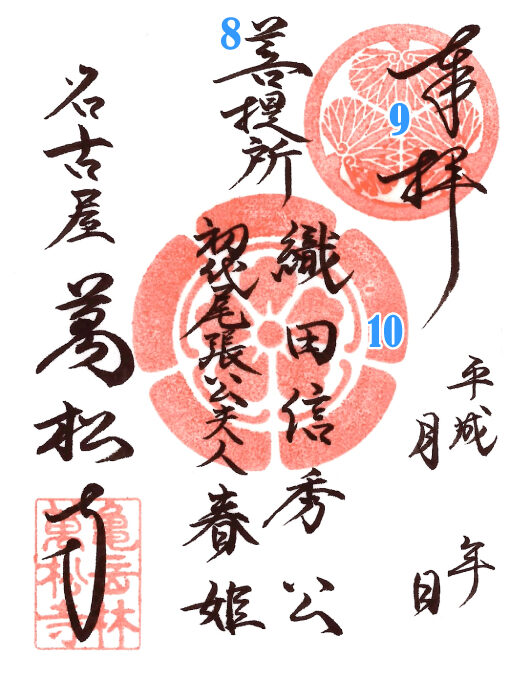 奉拝
平成 年
月 日
8
菩提所
9
10
織田信秀公
初代尾張公夫人 春姫
名古屋 萬松寺
亀岳林
萬松寺